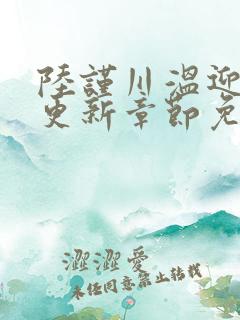 陸謹川溫迎
更新章節免
澀澀愛
未経同意禁止转载